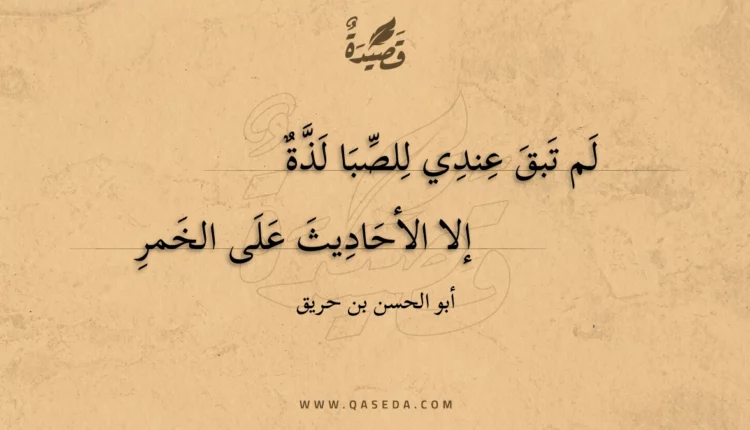 قَصِيدَةٌ
لَم تَبقَ عِندِي لِلصِّبَا لَذَّةٌ
إلا الأحَادِيثَ عَلَى الخَمرِ
أبو الحسن بن حريق
WWW.QASEDA.COM